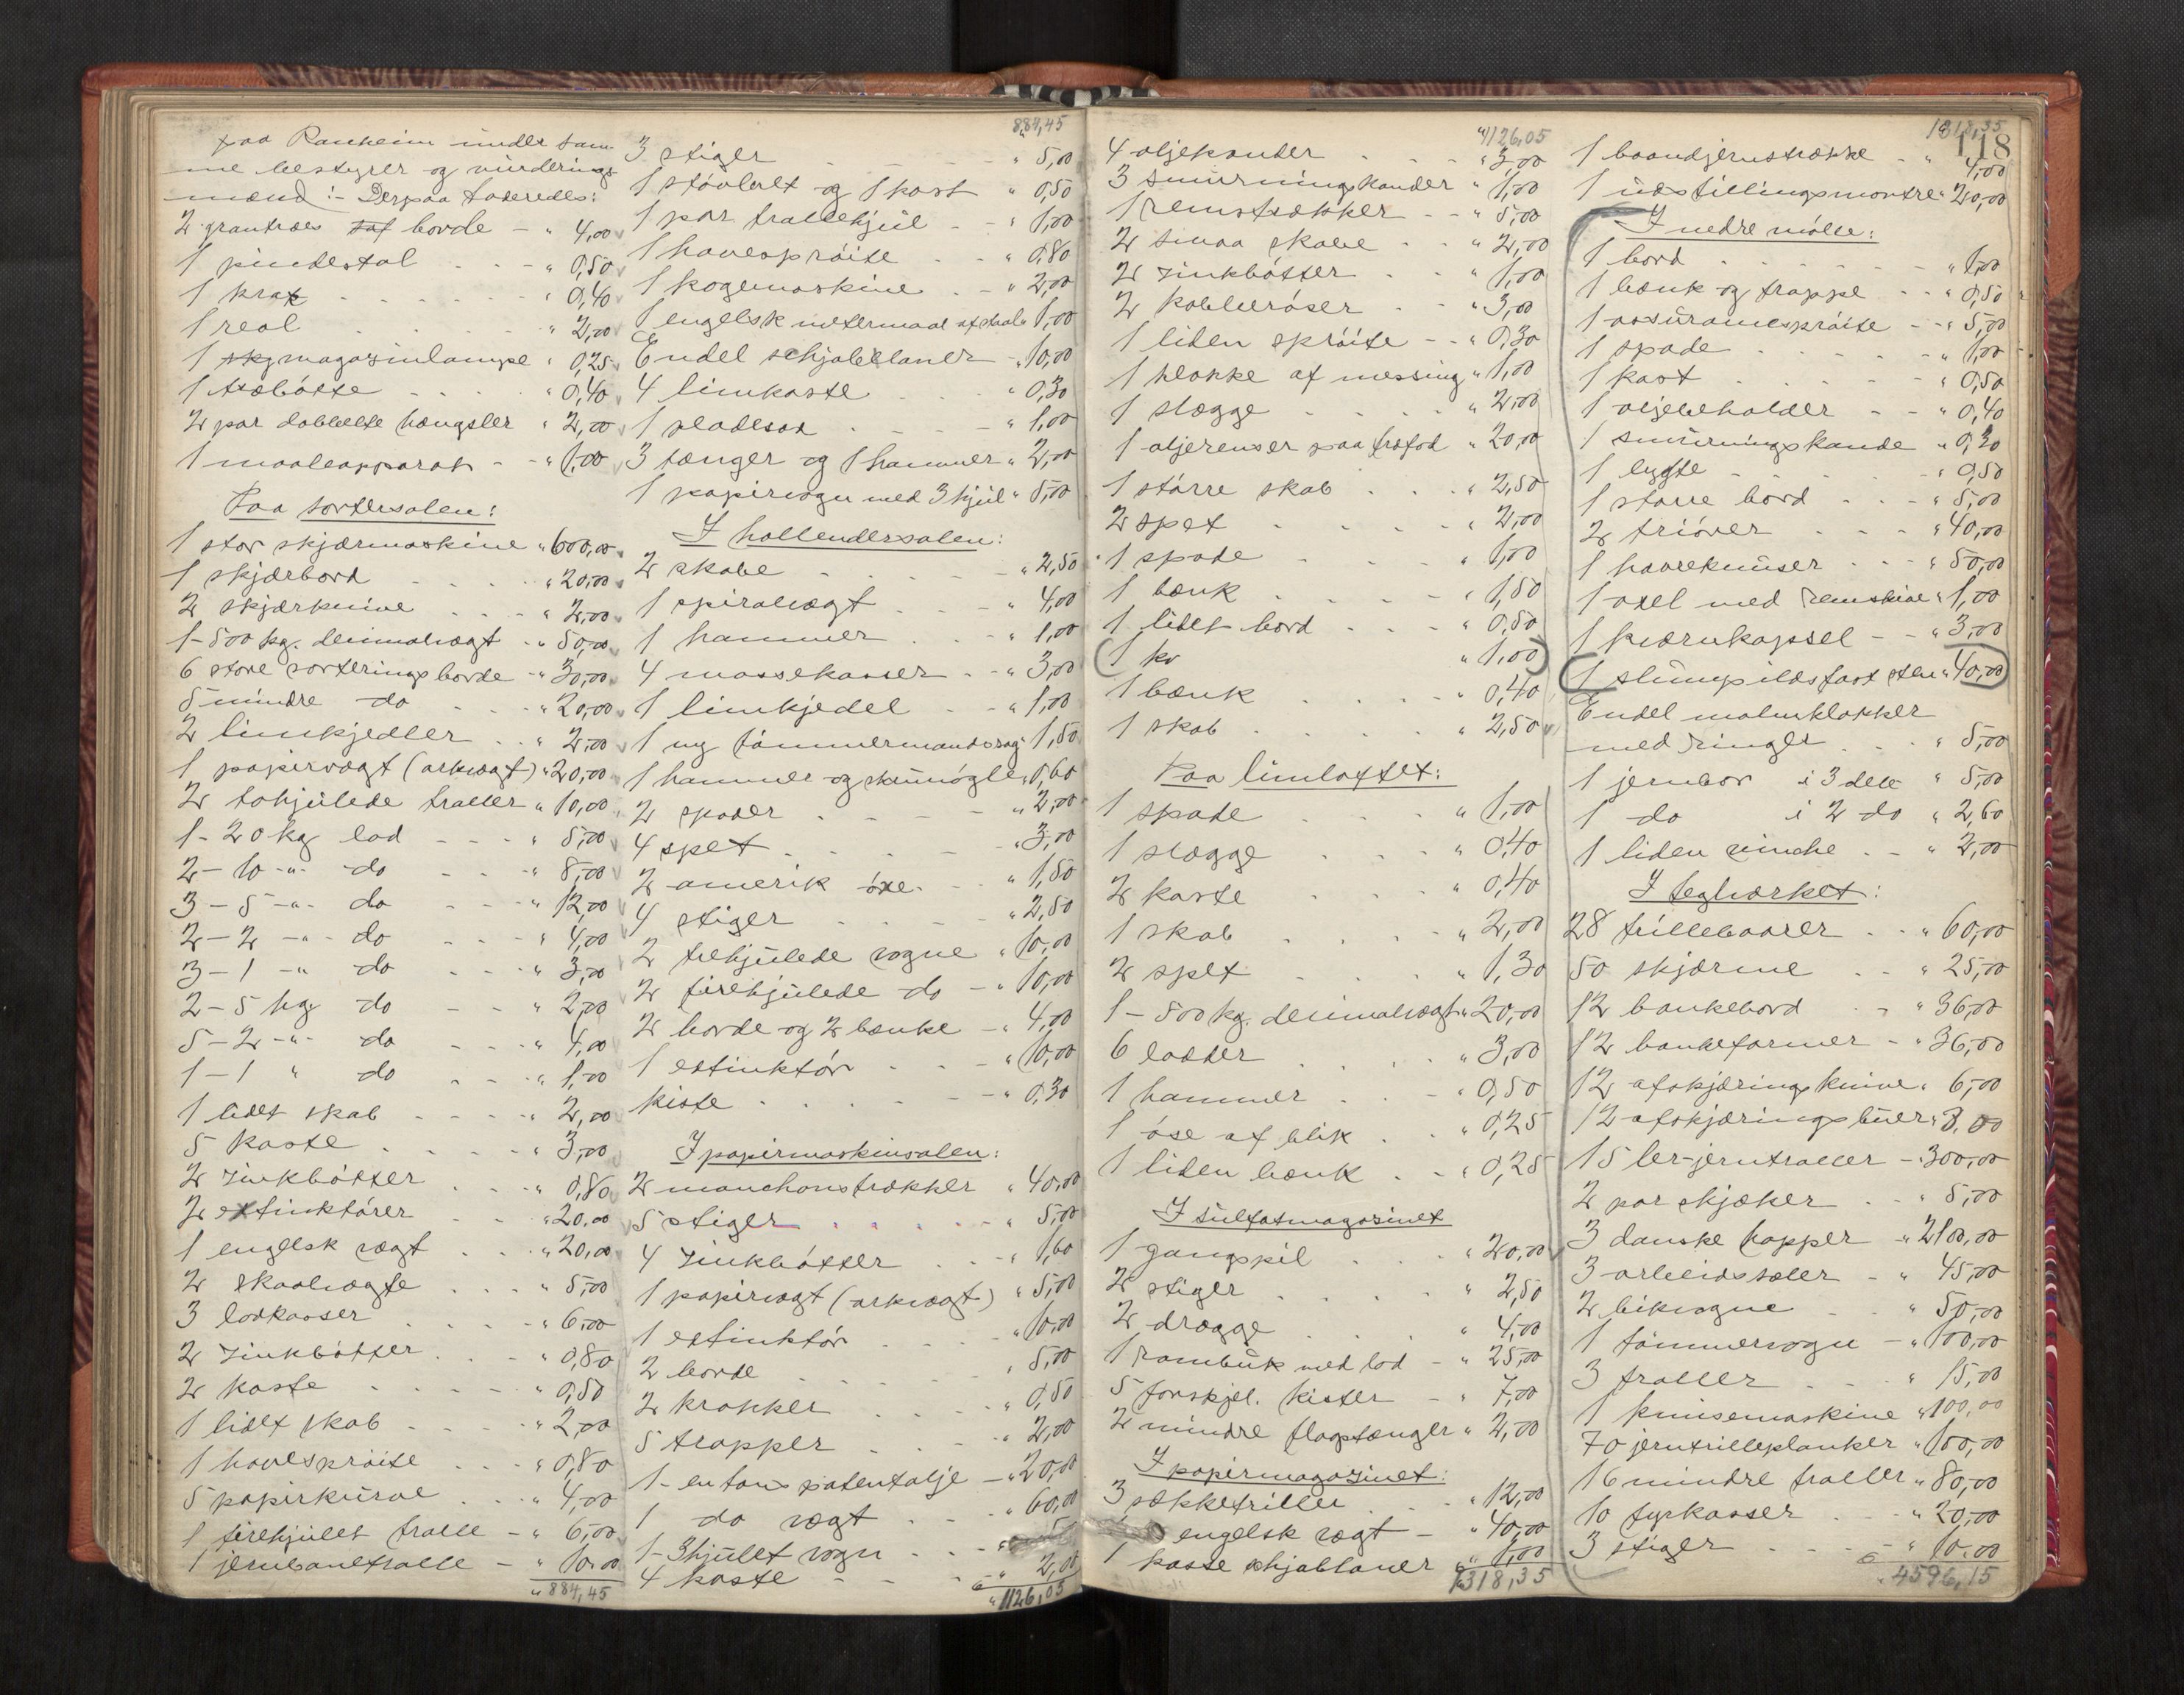 paa Ranheim under sam-
me bestyrer og vurderings-
mænd :- Derpaa taxeredes:
2 grantræes borde - " 4,00
1 pindestol . . - " 0,50
1 krak . . . " 0,40
1 reol . . . " 2,00
1 magazinlampe " 0,25
1 træbøtte . . . " 0,40
2 par dobbelte hængsler " 2,00
1 maaleapparat - - " 1,00
Paa sortersalen:
1 stor skjærmaskine " 600,00
1 skjærbord . . . " 20,00
2 skjærknive . . . " 2,00
1-500 kg. decimalvægt - " 50,00
6 store sorteringsborde - " 30,00
5 mindre do . . . " 20,00
2 limkjedler . . . " 2,00
1 papirvægt (arkvægt) " 20,00
2 tohjulede traller " 10,00
1-20 kg lod - - - " 5,00
2-10 -"- do - - " 8,00
3-5 -"- do - - - " 12,00
2-2 -"- do - - - " 4,00
3-1 -"- do - - - " 3,00
2-5 hg do - - " 2,00
5-2 -"- do - - - " 4,00
1-1 " do - - - " 1,00
1 lidet skab - - - - " 2,00
5 koste . . . " 3,00
2 zinkbøtter . . . " 0,80
2 extinktører - - " 20,00
1 engelsk vægt . . . " 20,00
2 skaalvægte . . . " 5,00
3 lodkasser . . . " 6,00
2 zinkbøtter . . - " 0,80
2 koste . . . " 0,50
1 lidet skab . . . " 2,00
1 havesprøite . . . " 0,80
5 papirkurve . . . " 4,00
1 firehjulet tralle - " 6,00
1 jernbanetralle - " 10,00
" 884,45
884,45
3 stiger - - - - " 5,00
1 støvbret og 1 kost " 0,50
1 par trallehjul - - " 1,00
1 havesprøite . . " 0,80
1 kogemaskine . - " 2,00
1 engelsk metermaal af staal " 1,00
Endel schjablaner - " 10,00
4 limkoste . . . " 0,30
1 - - - " 1,00
3 tænger og 1 hammer " 2,00
1 papirvogn med 3 hjul " 5,00
I hollendersalen:
2 skabe - - - - " 2,50
1 spiralvægt . . . " 4,00
1 hammer . . - " 1,00
4 massekasser . - " 3,00
1 limkjedel . . - " 1,00
1 ny tømmermandssag " 1,50
1 hammer og skruenøgle " 0,60
2 spader . - - - " 2,00
4 spet . . . " 3,00
2 amerik øxe. . . " 1,50
4 stiger . . . " 2,50
2 trehjulede vogne " 10,00
2 firehjulede do - " 10,00
2 borde og 2 bænke - " 4,00
1 extinktør . . - " 10,00
kiste . . . - - " 0,30
I papirmaskinsalen:
2 manchonstrækker " 40,00
5 stiger . . . " 5,00
4 zinkbøtter . . . " 1,60
1 papirvægt (arkvægt) " 5,00
1 extinktør . . . " 10,00
2 borde . . . " 5,00
2 krakker . . . " 0,50
5 trapper . . . " 2,00
1- en tons patenttalje - " 20,00
1 do vægt . . . " 60,00
1-3hjulet vogn . . - "
4 koste - - - " 2,00
" 1126,05
" 1126,05
4 oljekander . . . " 3,00
3 smurningskander " 1,00
1 remstrækker - - " 5,00
2 smaa skabe . . " 2,00
2 zinkbøtter . . " 1,00
2 " 3,00
1 liden sprøite - - " 0,30
1 klokke af messing " 1,00
1 slægge . . . " 2,00
1 oljerenser paa træfod " 20,00
1 større skab . . . " 2,50
2 spet . . . " 2,00
1 spade . . . " 1,00
1 bænk . . . " 1,50
1 lidet bord . . . " 0,50
(1 kv " 1,00)
1 bænk . . . " 0,40
1 skab . . . " 2,50
Paa limloftet:
1 spade . . . " 1,00
1 slægge . . . " 0,40
2 koste . . . " 0,40
1 skab . . . " 2,00
2 spet . . . " 1,30
1-500 kg. decimalvægt " 20,00
6 lodder . . . " 3,00
1 hammer . . - " 0,50
1 øse af blik . . " 0,25
1 liden bænk . - " 0,25
I sulfatmagazinet
1 gangspil . . . " 20,00
2 stiger . . . " 2,50
2 drægge . . . " 4,00
1 rambuk med lod - " 25,00
5 forskjel. kister - " 7,00
2 mindre flagstænger " 2,00
I papirmagazinet:
3 sækketriller . . . " 12,00
engelsk vægt - " 40,00
1 kasse schjablaner " 1,00
1318,35
1318,35
118
1 baandjernstrække . . " 4,00
1 udstillingsmontre " 20,00
I nedre mølle:
1 bord . . . " 1,00
1 bænk og trappe - - " 0,50
1 assurancesprøite - - " 5,00
1 spade . . . " 1,00
1 kost . . . " 0,50
1 oljebeholder - - " 0,40
1 smurningskande " 0,30
1 lygte - . . " 0,50
1 større bord . . . " 5,00
2 triører . . . " 40,00
1 havreknuser . . . " 50,00
1 axel med remskive " 1,00
1 kværnkapsel - - " 3,00
(1 slump ildsfast sten " 40,00)
Endel malmklokker
med ringer . . . " 5,00
1 jernbor i 3 dele " 5,00
1 do i 2 do " 2,60
1 liden vinche . . - " 2,00
I teglværket:
28 trillebaarer . . " 60,00
50 skjærme . . " 25,00
12 bankebord - " 36,00
12 bankeformer - " 36,00
12 afskjæringsknive " 6,00
12 afskjæringsbuer " 3,00
15 ler-jerntraller - " 300,00
2 par skjæker . . " 5,00
3 danske hopper - " 2100,00
3 arbeidsseler - " 45,00
2 " 50,00
1 tømmervogn - " 100,00
3 traller . . . " 15,00
1 knusemaskine " 100,00
70 jerntrilleplanker " 100,00
16 mindre traller " 80,00
10 fyrkasser . . . " 20,00
3 stiger . . . " 10,00
" 4596,15